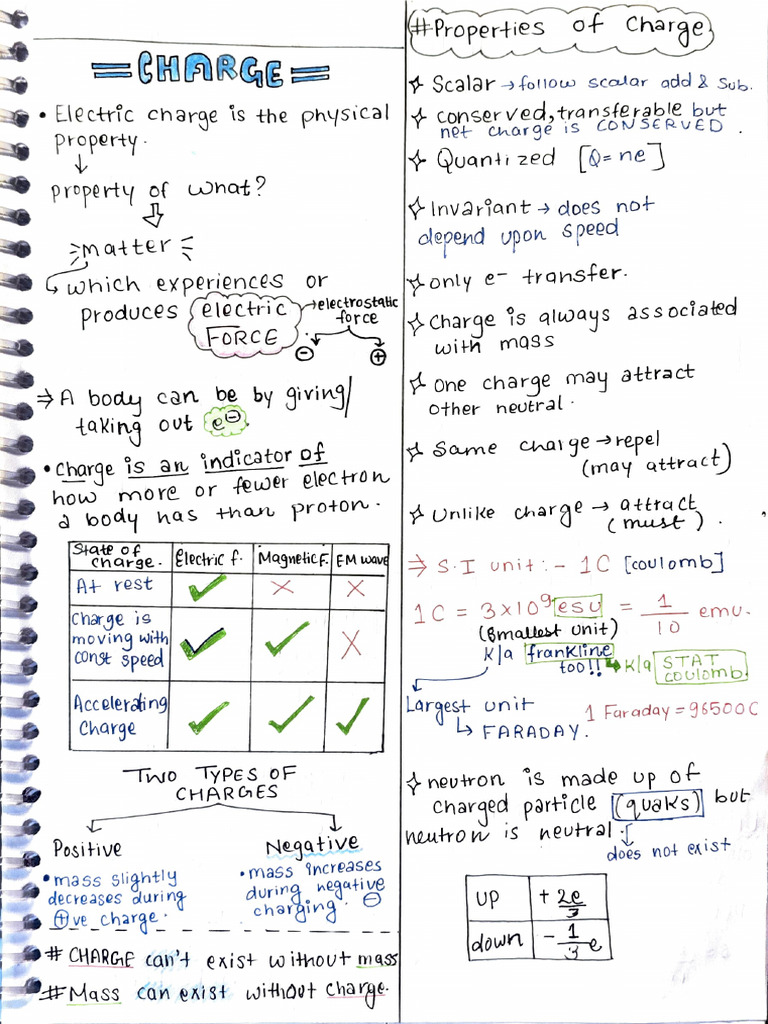 CHARGE
• Electric charge is the physical
property.
property of what?
matter
which experiences or
produces electric
FORCE
→electrostatic
force
⊖ ⊕
⇒ A body can be by giving/
taking out e⊖.
• charge is an indicator of
how more or fewer electron
a body has than proton.
State of charge. Electric f. Magnetic F. EM wave
At rest ✓ × ×
Charge is
moving with
const speed ✓ ✓ ×
Accelerating
charge ✓ ✓ ✓
TWO TYPES OF
CHARGES
Positive
• mass slightly
decreases during
⊕ve charge.
Negative
• mass increases
during negative
charging. ⊖
# CHARGE can't exist without mass
# Mass can exist without charge.
#Properties of Charge.
✧ Scalar → follow scalar add & sub.
✧ conserved, transferable but
net charge is CONSERVED.
✧ Quantized [Q=ne]
✧ Invariant → does not
depend upon speed
✧ only e- transfer.
✧ Charge is always associated
with mass
✧ One charge may attract
other neutral.
✧ Same charge → repel
(may attract)
✧ Unlike charge → attract
(must).
⇒ S.I unit :- 1C [coulomb]
1C = 3×10⁹ esu = 1/10 emu.
(smallest unit)
k/a frankline
too!! → k/a STAT
coulomb.
Largest unit
↳ FARADAY.
1 Faraday = 96500C
✧ neutron is made up of
charged particle (quaks) but
neutron is neutral.
does not exist
up + 2e/3
down - 1/3 e